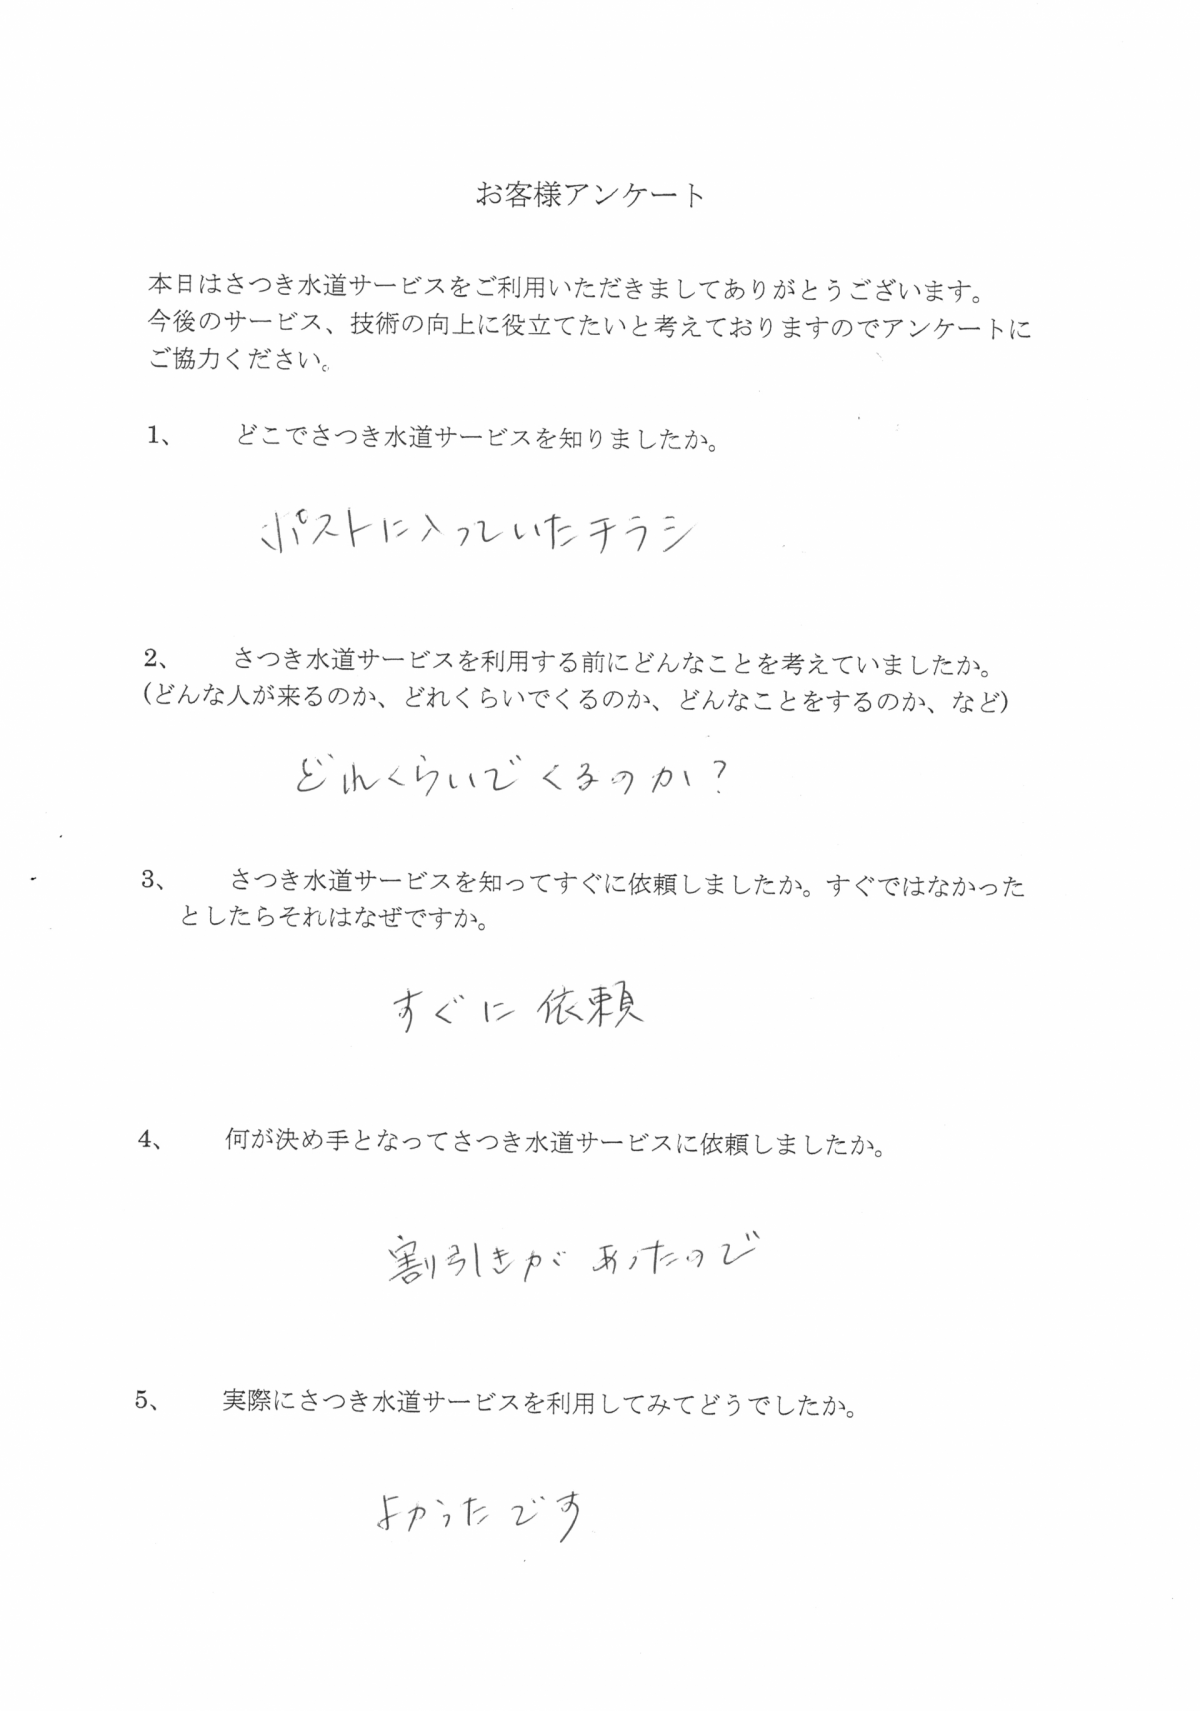 お客様アンケート
本日はさつき水道サービスをご利用いただきましてありがとうございます。
今後のサービス、技術の向上に役立てたいと考えておりますのでアンケートに
ご協力ください。
1、 どこでさつき水道サービスを知りましたか。
ポストに入っていたチラシ
2、 さつき水道サービスを利用する前にどんなことを考えていましたか。
(どんな人が来るのか、どれくらいでくるのか、どんなことをするのか、など)
どれくらいでくるのか?
3、 さつき水道サービスを知ってすぐに依頼しましたか。すぐではなかった
としたらそれはなぜですか。
すぐに依頼
4、 何が決め手となってさつき水道サービスに依頼しましたか。
割引きがあったので
5、 実際にさつき水道サービスを利用してみてどうでしたか。
よかったです